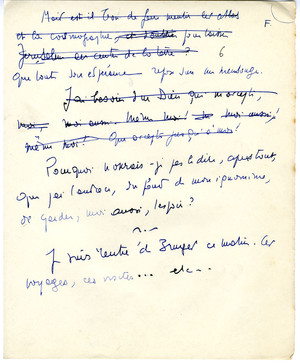 Mais est-il bon de faire mentir les atlas
F.
et la cosmographie, et d'oublier pour
Jérusalem au centre de la terre ? 6
que toute son espérance repose sur un mensonge.
J'ai besoin d'un Dieu qui m'accepte,
moi, moi aussi. Même moi ! moi aussi !
même moi ! Qui accepte jusqu'à moi !
Pourquoi n'aurais-je pas le droit, après tout,
que j'ai l'audace, du fond de mon ignominie,
de garder, moi aussi, l'espoir ?
Je suis rentré de Bruges ce matin. Ces
voyages, ces visites... etc...